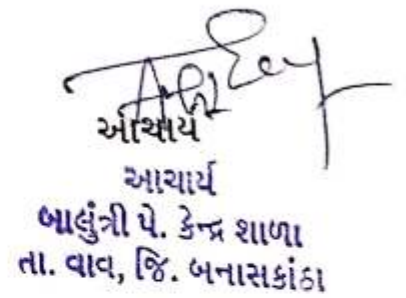 આચાર્ય
આચાર્ય
બાલુંત્રી પે. કેન્દ્ર શાળા
તા. વાવ, જિ. બનાસકાંઠા